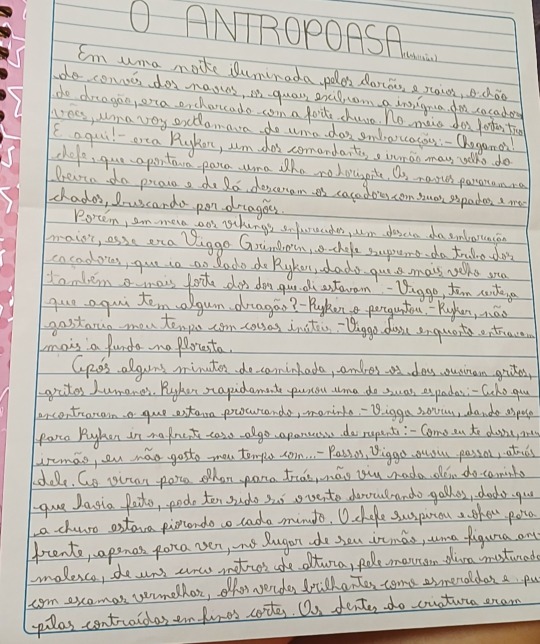 O ANTROPOASA
Em uma noite iluminada pelos clarões e raios, o chão
do convés dos navios, os quais exibiam a insígnia dos caçadores
de dragão, era encharcado com a forte chuva. No meio dos fortes tro
vões, uma voz exclamava de uma das embarcações: - Chegamos!
É aqui! - era Ryker, um dos comandantes e irmão mais velho do
chefe, que apontava para uma ilha no horizonte. Os navios pararam na
beira da praia e de lá desceram os caçadores com suas espadas e ma
chados, buscando por dragões.
Porém, em meio aos vikings enfurecidos, um descia da embarcação
maior, esse era Viggo Grimborn, o chefe supremo da tribo dos
caçadores, que ia ao lado de Ryker, dado que o mais velho era
também o mais forte dos dos que ali estavam - Viggo, tem certeza
que aqui tem algum dragão? - Ryker o perguntou - Ryker, não
gastaria meu tempo com coisas inúteis - Viggo disse enquanto entravam
mais a fundo na floresta.
Após alguns minutos de caminhada, ambos os dois ouviram gritos,
gritos humanos. Ryker rapidamente puxou uma de suas espadas: - Acho que
encontraram o que estava procurando, maninho - Viggo sorriu, dando espaço
para Ryker ir na frente caso algo aparecesse de repente: - Como eu te disse, meu
irmão, eu não gasto meu tempo com... - Passos, Viggo ouviu passos, atrás
dele. Ao virar para olhar para trás, não viu nada além do caminho
que havia feito, pode ter sido só o vento derrubando galhos, dado que
a chuva estava piorando a cada minuto. O chefe suspirou e olhou para
frente, apenas para ver, no lugar de seu irmão, uma figura ani
malesca, de uns cinco metros de altura, pele marrom oliva misturada
com escamas vermelhas, olhos verdes brilhantes como esmeraldas e pu
pilas contraídas em finos cortes. Os dentes da criatura eram